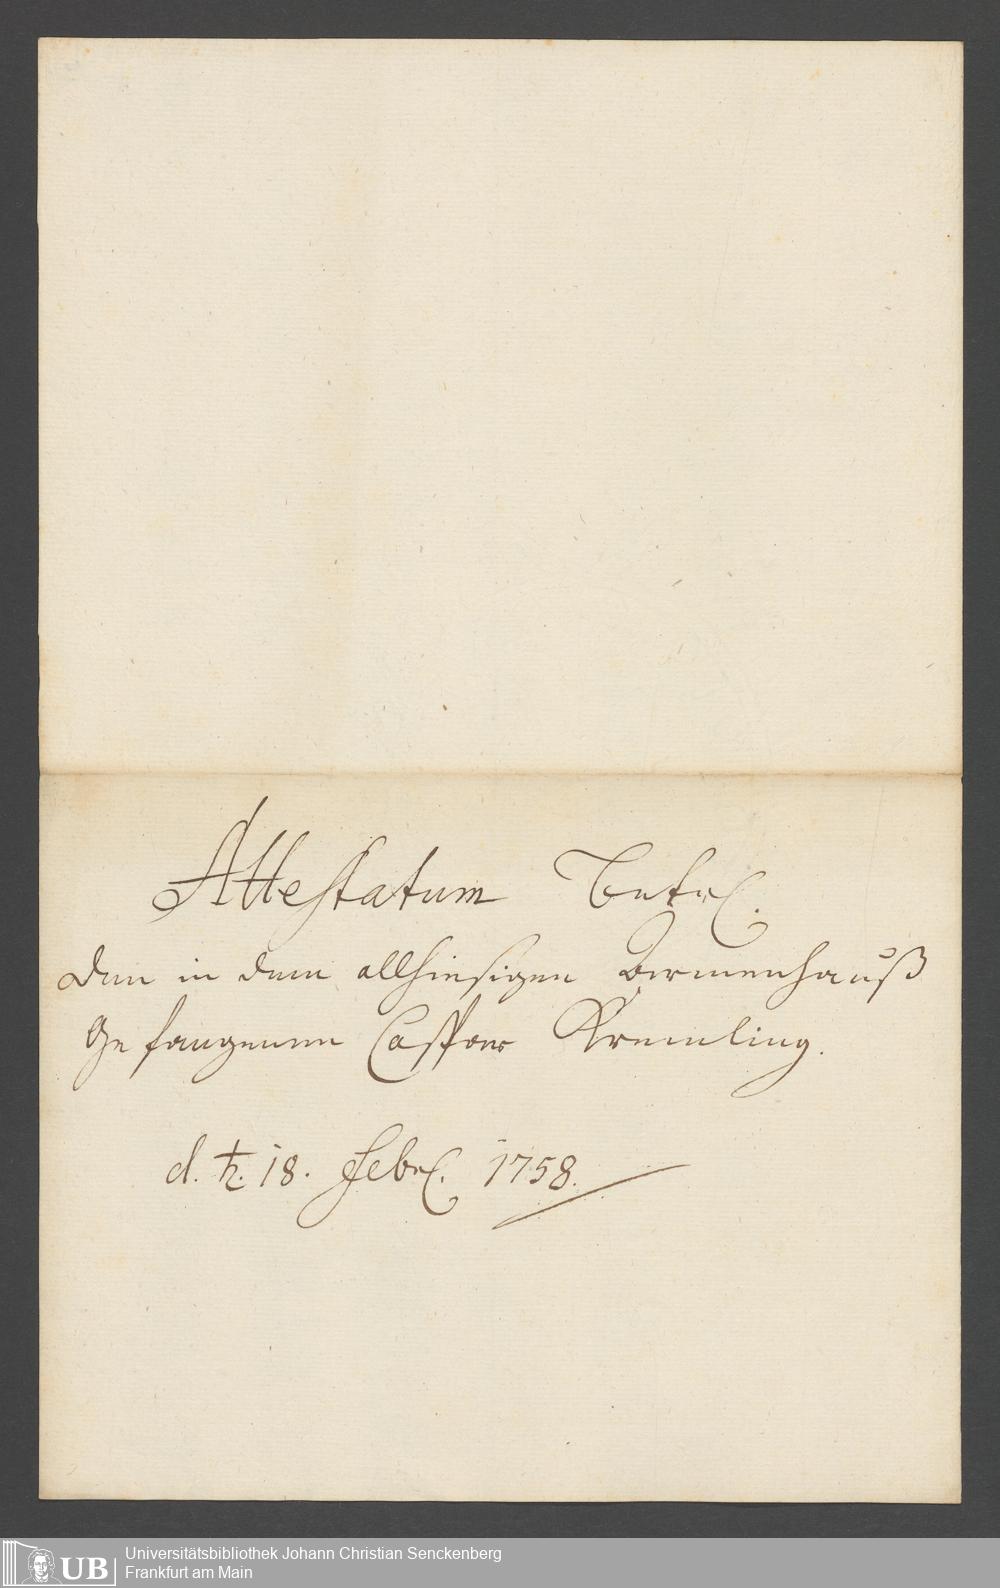 Attestatum betr.
den in dem allhiesigen Armenhauß
Gefangenen Caspar Kremling.
d. ♄. 18. Febr. 1758.
UB
Universitätsbibliothek Johann Christian Senckenberg
Frankfurt am Main